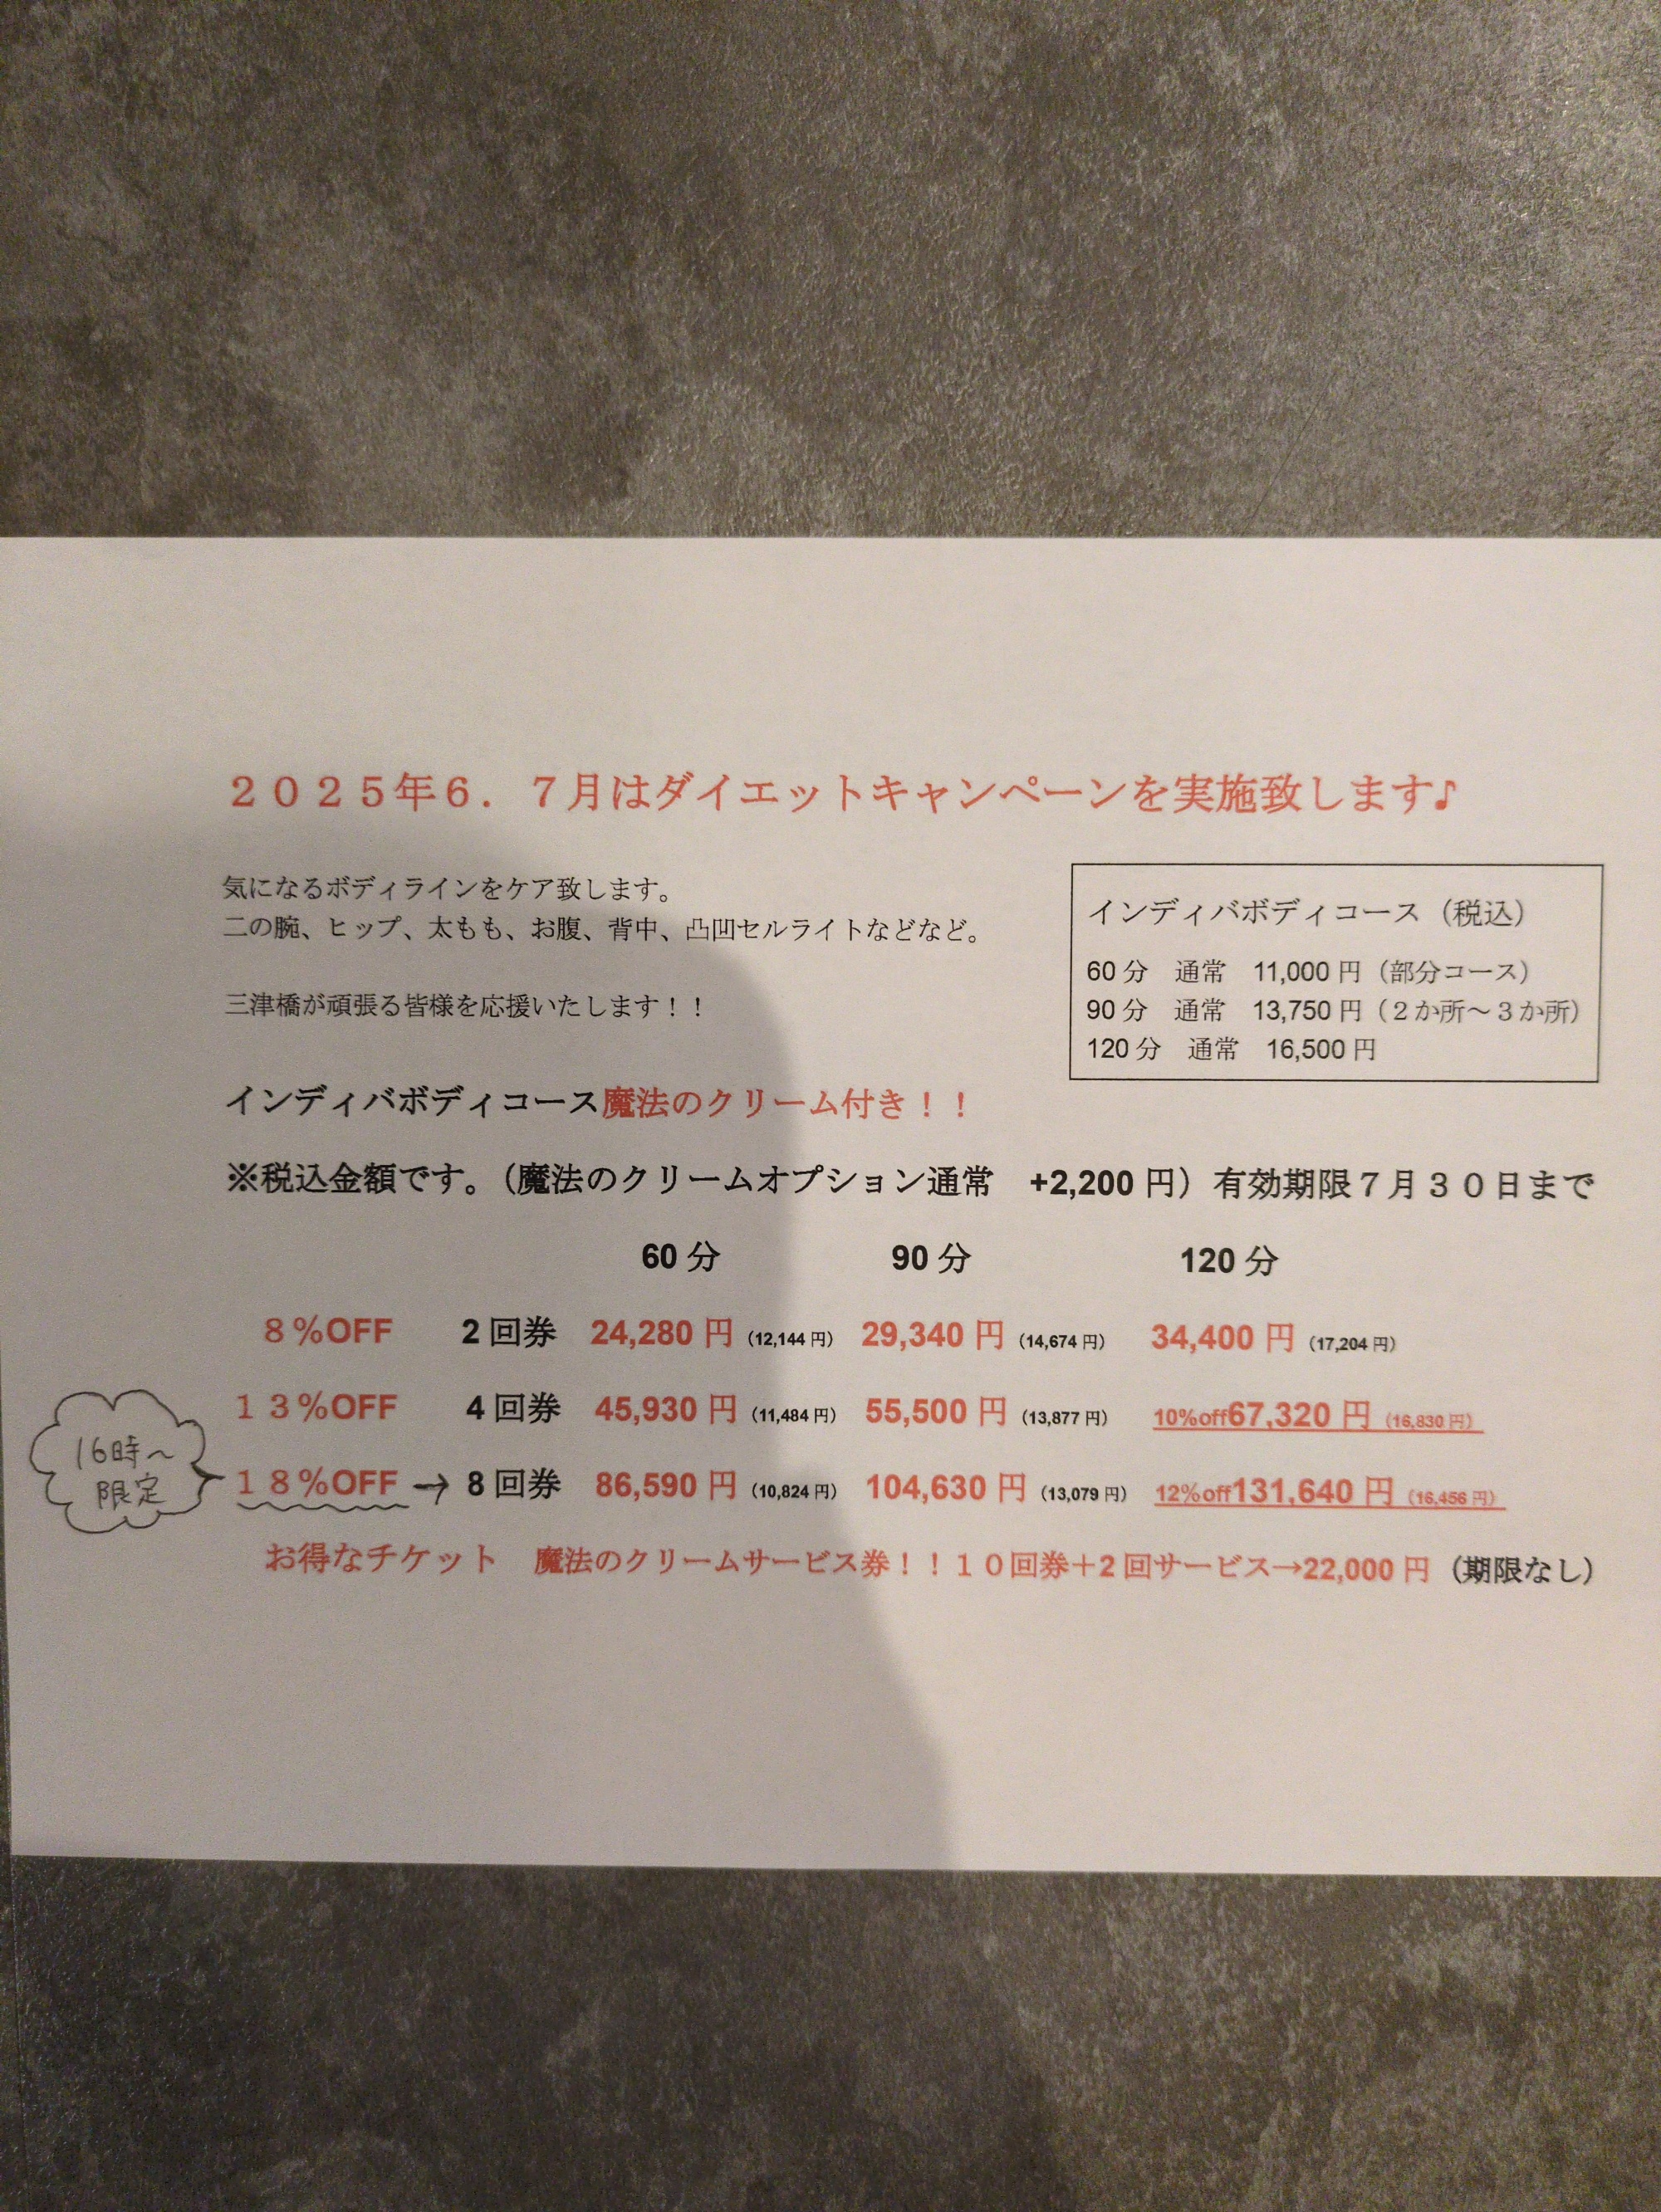 ２０２５年６．７月はダイエットキャンペーンを実施致します♪
気になるボディラインをケア致します。
二の腕、ヒップ、太もも、お腹、背中、凸凹セルライトなどなど。
三津橋が頑張る皆様を応援いたします！！
インディバボディコース（税込）
60分　通常　11,000円（部分コース）
90分　通常　13,750円（２か所～３か所）
120分　通常　16,500円
インディバボディコース魔法のクリーム付き！！
※税込金額です。（魔法のクリームオプション通常　+2,200円）有効期限７月３０日まで
60分　90分　120分
８％OFF　2回券　24,280円（12,144円）　29,340円（14,674円）　34,400円（17,204円）
１３％OFF　4回券　45,930円（11,484円）　55,500円（13,877円）　10%off67,320円（16,830円）
16時～
限定
１８％OFF→8回券　86,590円（10,824円）　104,630円（13,079円）　12%off131,640円（16,456円）
お得なチケット　魔法のクリームサービス券！！１０回券＋2回サービス→22,000円（期限なし）